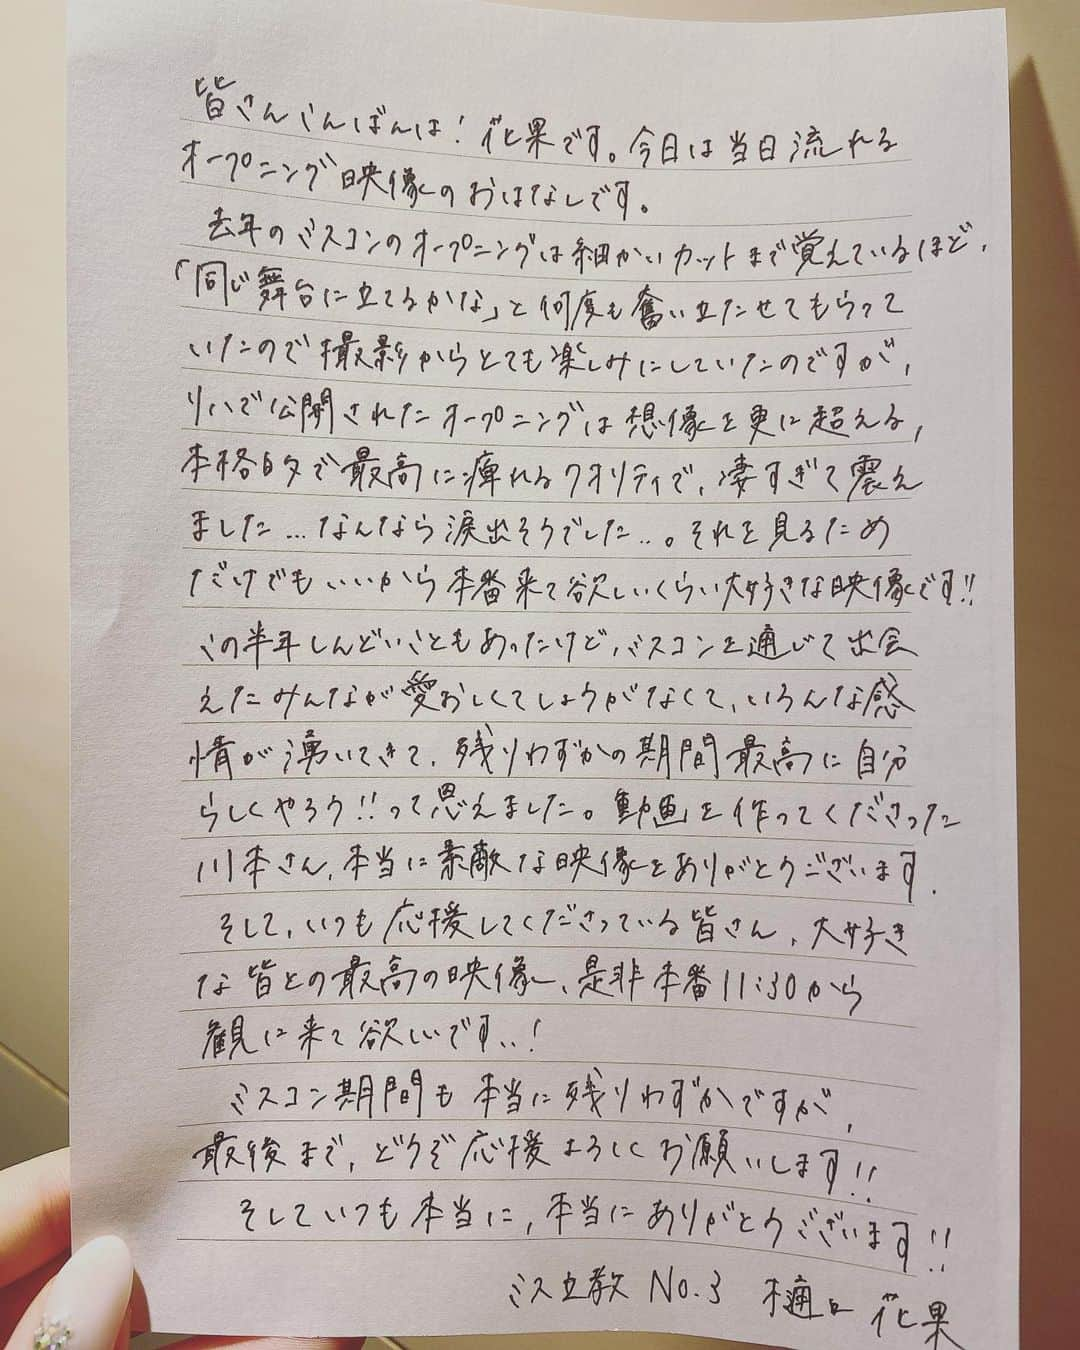 皆さんこんばんは!花果です。今日は当日流れる
オープニング映像のおはなしです。
去年のミスコンのオープニングは細かいカットまで覚えているほど、
「同じ舞台に立てるかな」と何度も奮い立たせてもらって
いたので撮影からとても楽しみにしていたのですが、
リハで公開されたオープニングは想像を更に超える、
本格的で最高に痺れるクオリティで、凄すぎて震え
ました…なんなら涙出そうでした…。それを見るため
だけでもいいから本番来て欲しいくらい大好きな映像です!!
この半年しんどいこともあったけど、ミスコンを通じて出会
えたみんなが愛おしくてしょうがなくて、いろんな感
情が湧いてきて、残りわずかの期間最高に自分
らしくやろう!!って思えました。動画を作ってくださった
川本さん、本当に素敵な映像をありがとうございます。
そして、いつも応援してくださっている皆さん、大好き
な皆との最高の映像、是非本番11:30から
観に来て欲しいです、、!
ミスコン期間も本当に残りわずかですが、
最後まで、どうぞ応援よろしくお願いします!!
そしていつも本当に、本当にありがとうございます!!
ミス立教 No.3 樋口 花果